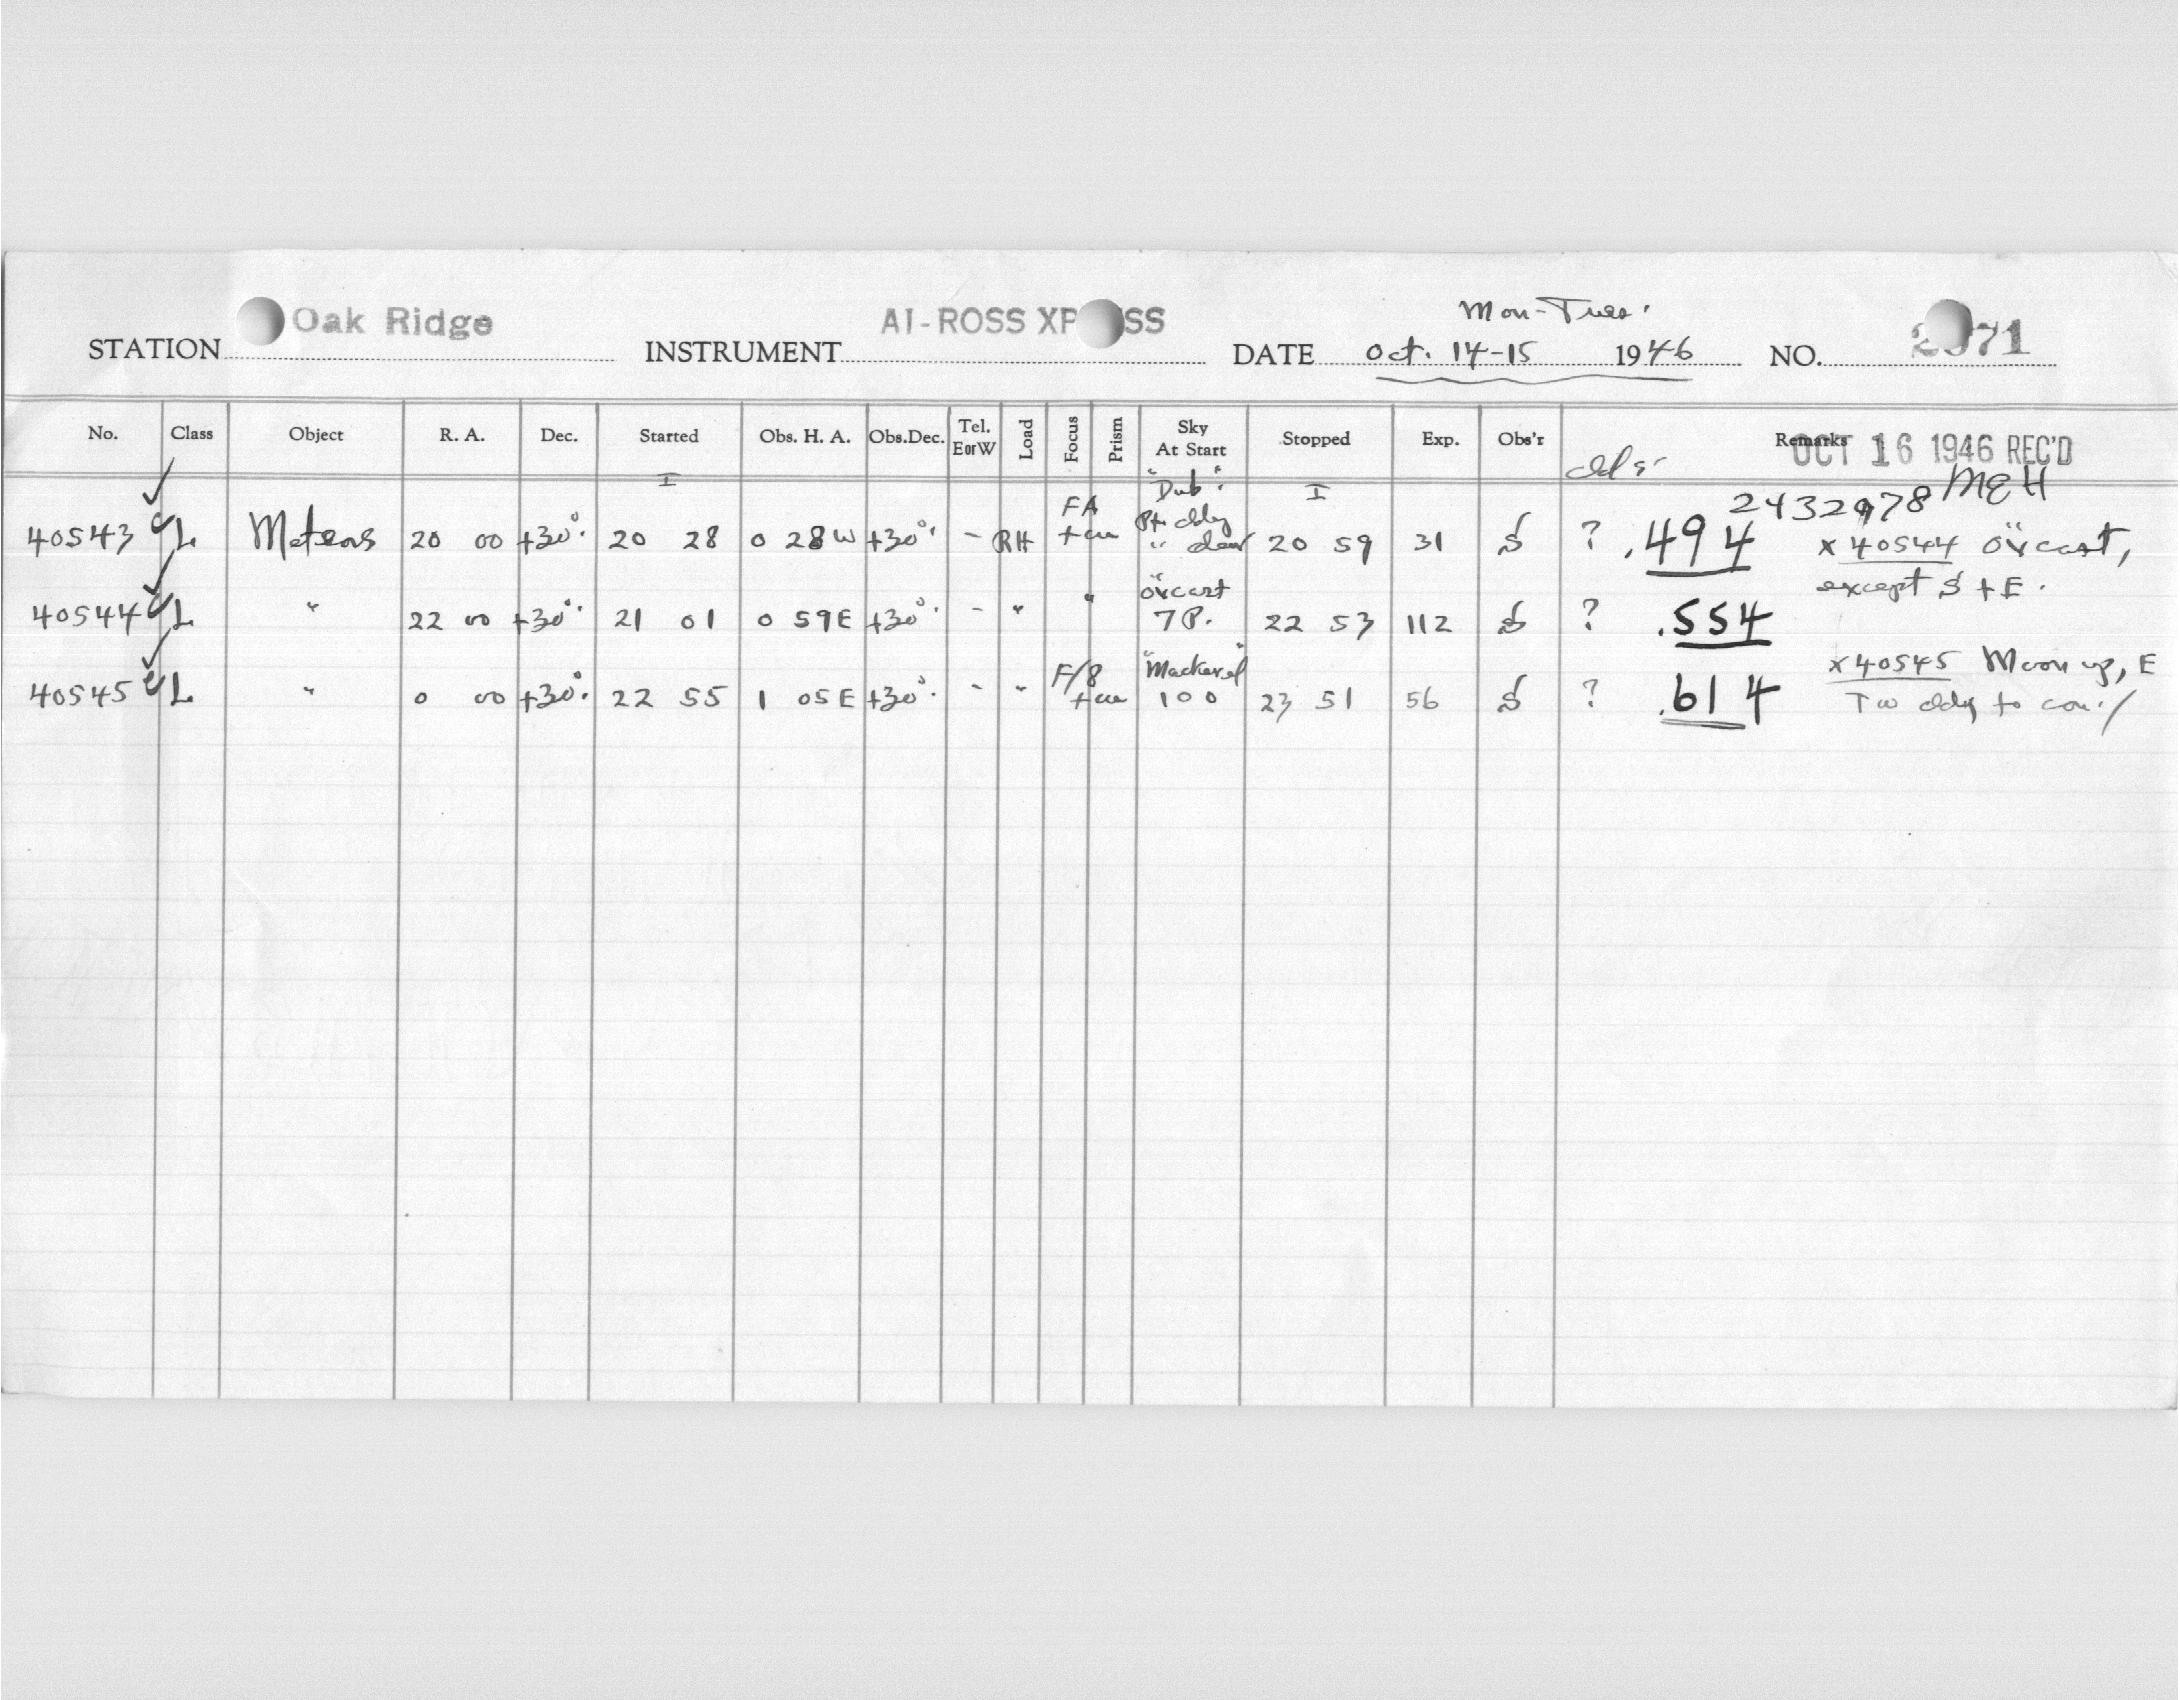 Mon-Tues.
STATION Oak Ridge INSTRUMENT AI-ROSS XP SS DATE Oct. 14-15 1946 NO. 2971
No. Class Object R. A. Dec. Started Obs. H. A. Obs.Dec. Tel. E or W Load Focus Prism Sky At Start Stopped Exp. Obs'r Remarks
OCT 16 1946 REC'D
I "Dub". I 2432978 MEH
40543 L Meteors 20 00 +30°. 20 28 0 28W +30°. - RH FA 20 59 31 S ? .494 x 40544 ov'cast,
except S + E.
40544 L " 22 00 +30°. 21 01 0 59E +30°. - " " ov'cast 7P. 22 53 112 S ? .554
40545 L " 0 00 +30°. 22 55 1 05E +30°. - " F/8 "Mackerel" 100 23 51 56 S ? .614 x 40545 Moon up, E
Too cldy to con./